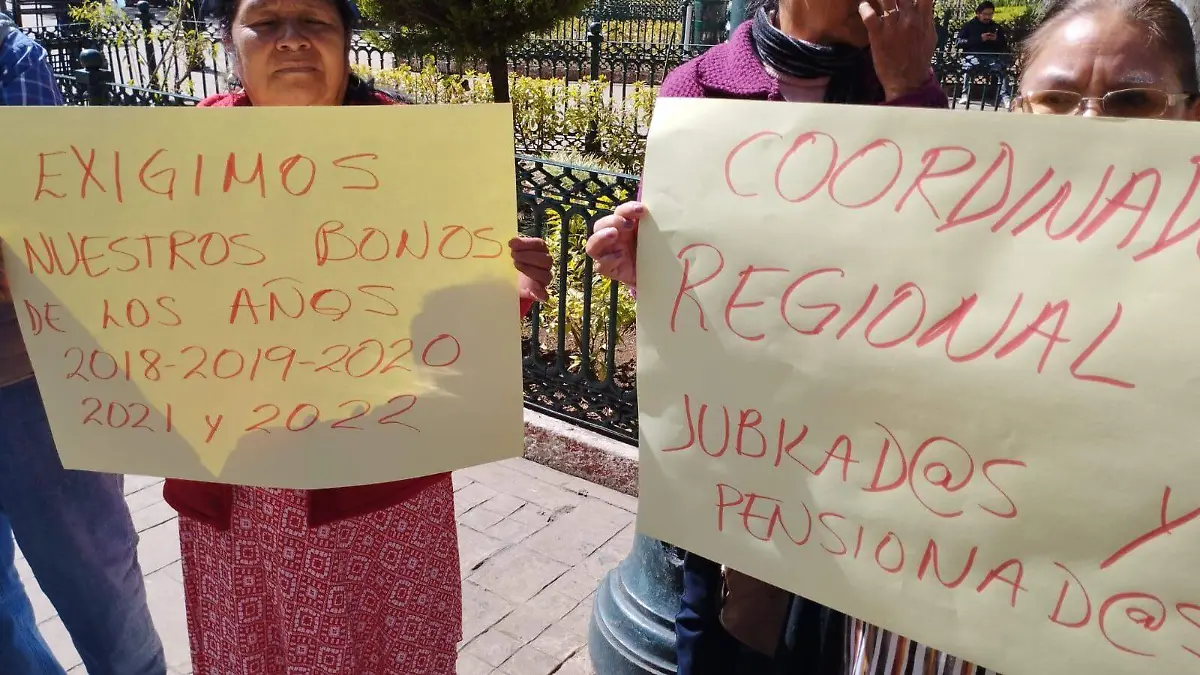 EXIGIMOS
NUESTROS BONOS
DE LOS AÑOS
2018-2019-2020
2021 y 2022
COORDINAD
REGIONAL
JUBKAD@S Y
PENSIONAD@S